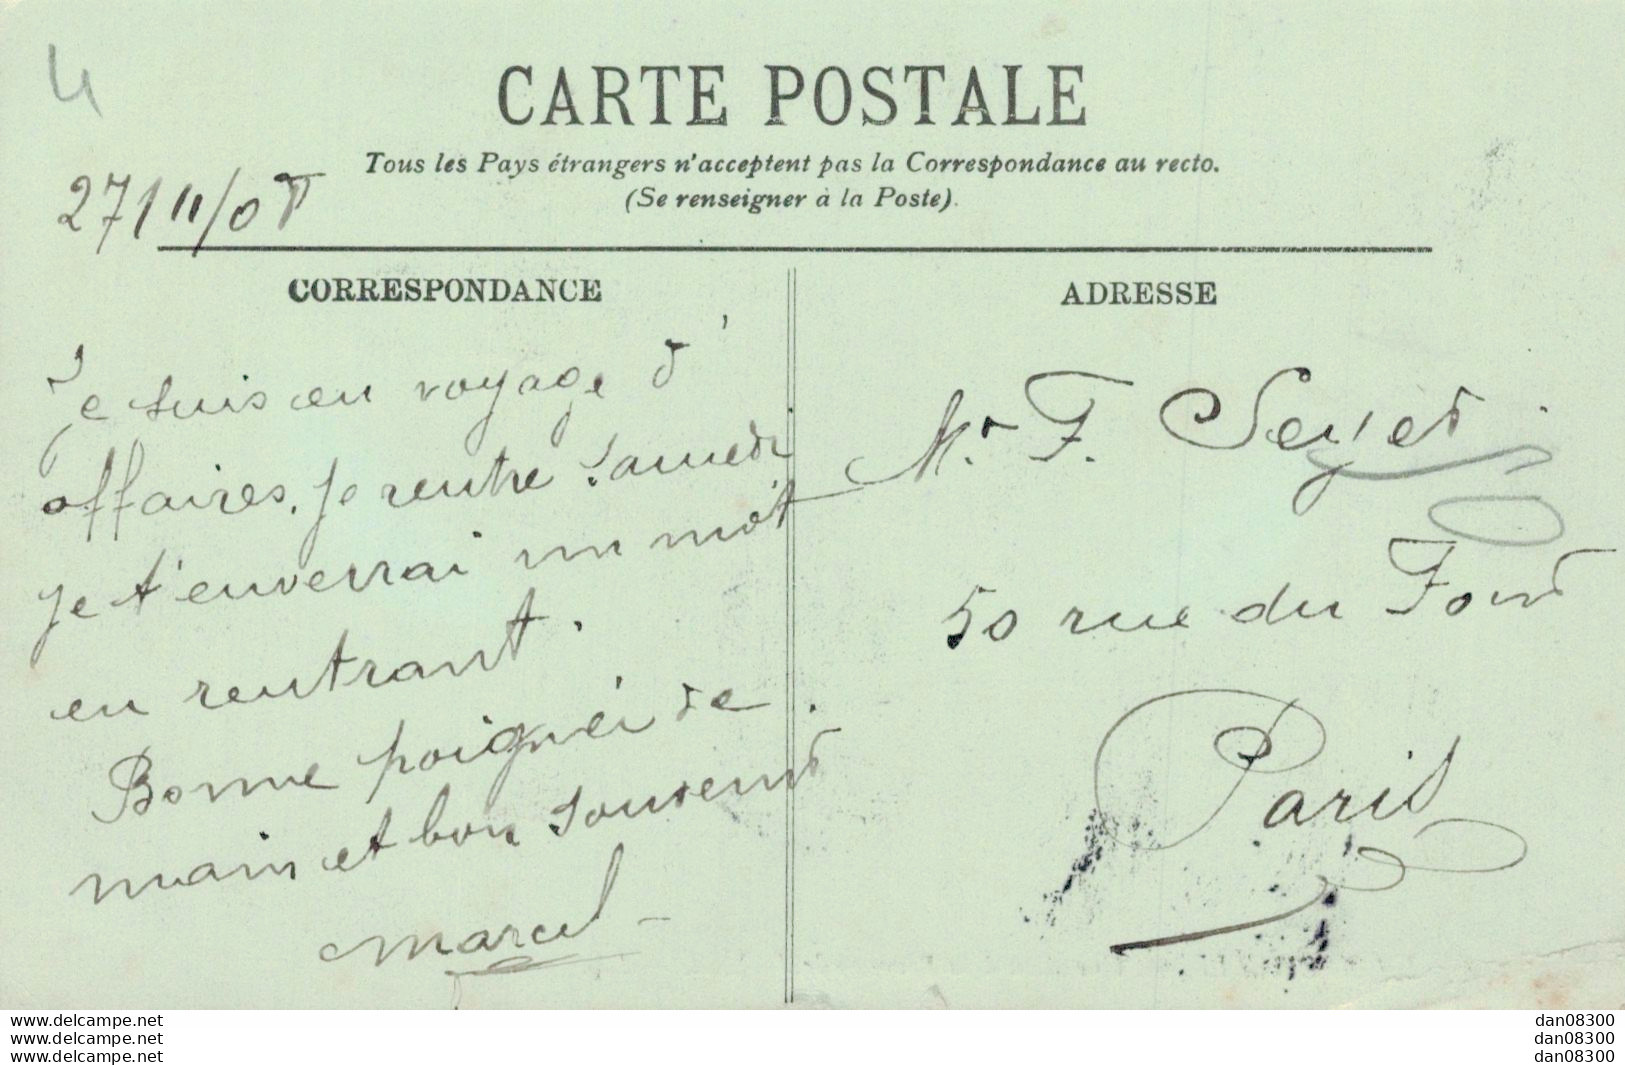 4
CARTE POSTALE
Tous les Pays étrangers n'acceptent pas la Correspondance au recto.
(Se renseigner à la Poste).
27/11/05
CORRESPONDANCE
Je suis en voyage d'
affaires, je rentre samedi
je t'enverrai un mot
en rentrant.
Bonne poignée de
main et bon souvenir
Marcel
ADRESSE
Mr. F. Seyer
50 rue du Four
Paris
www.delcampe.net
www.delcampe.net
www.delcampe.net
dan08300
dan08300
dan08300